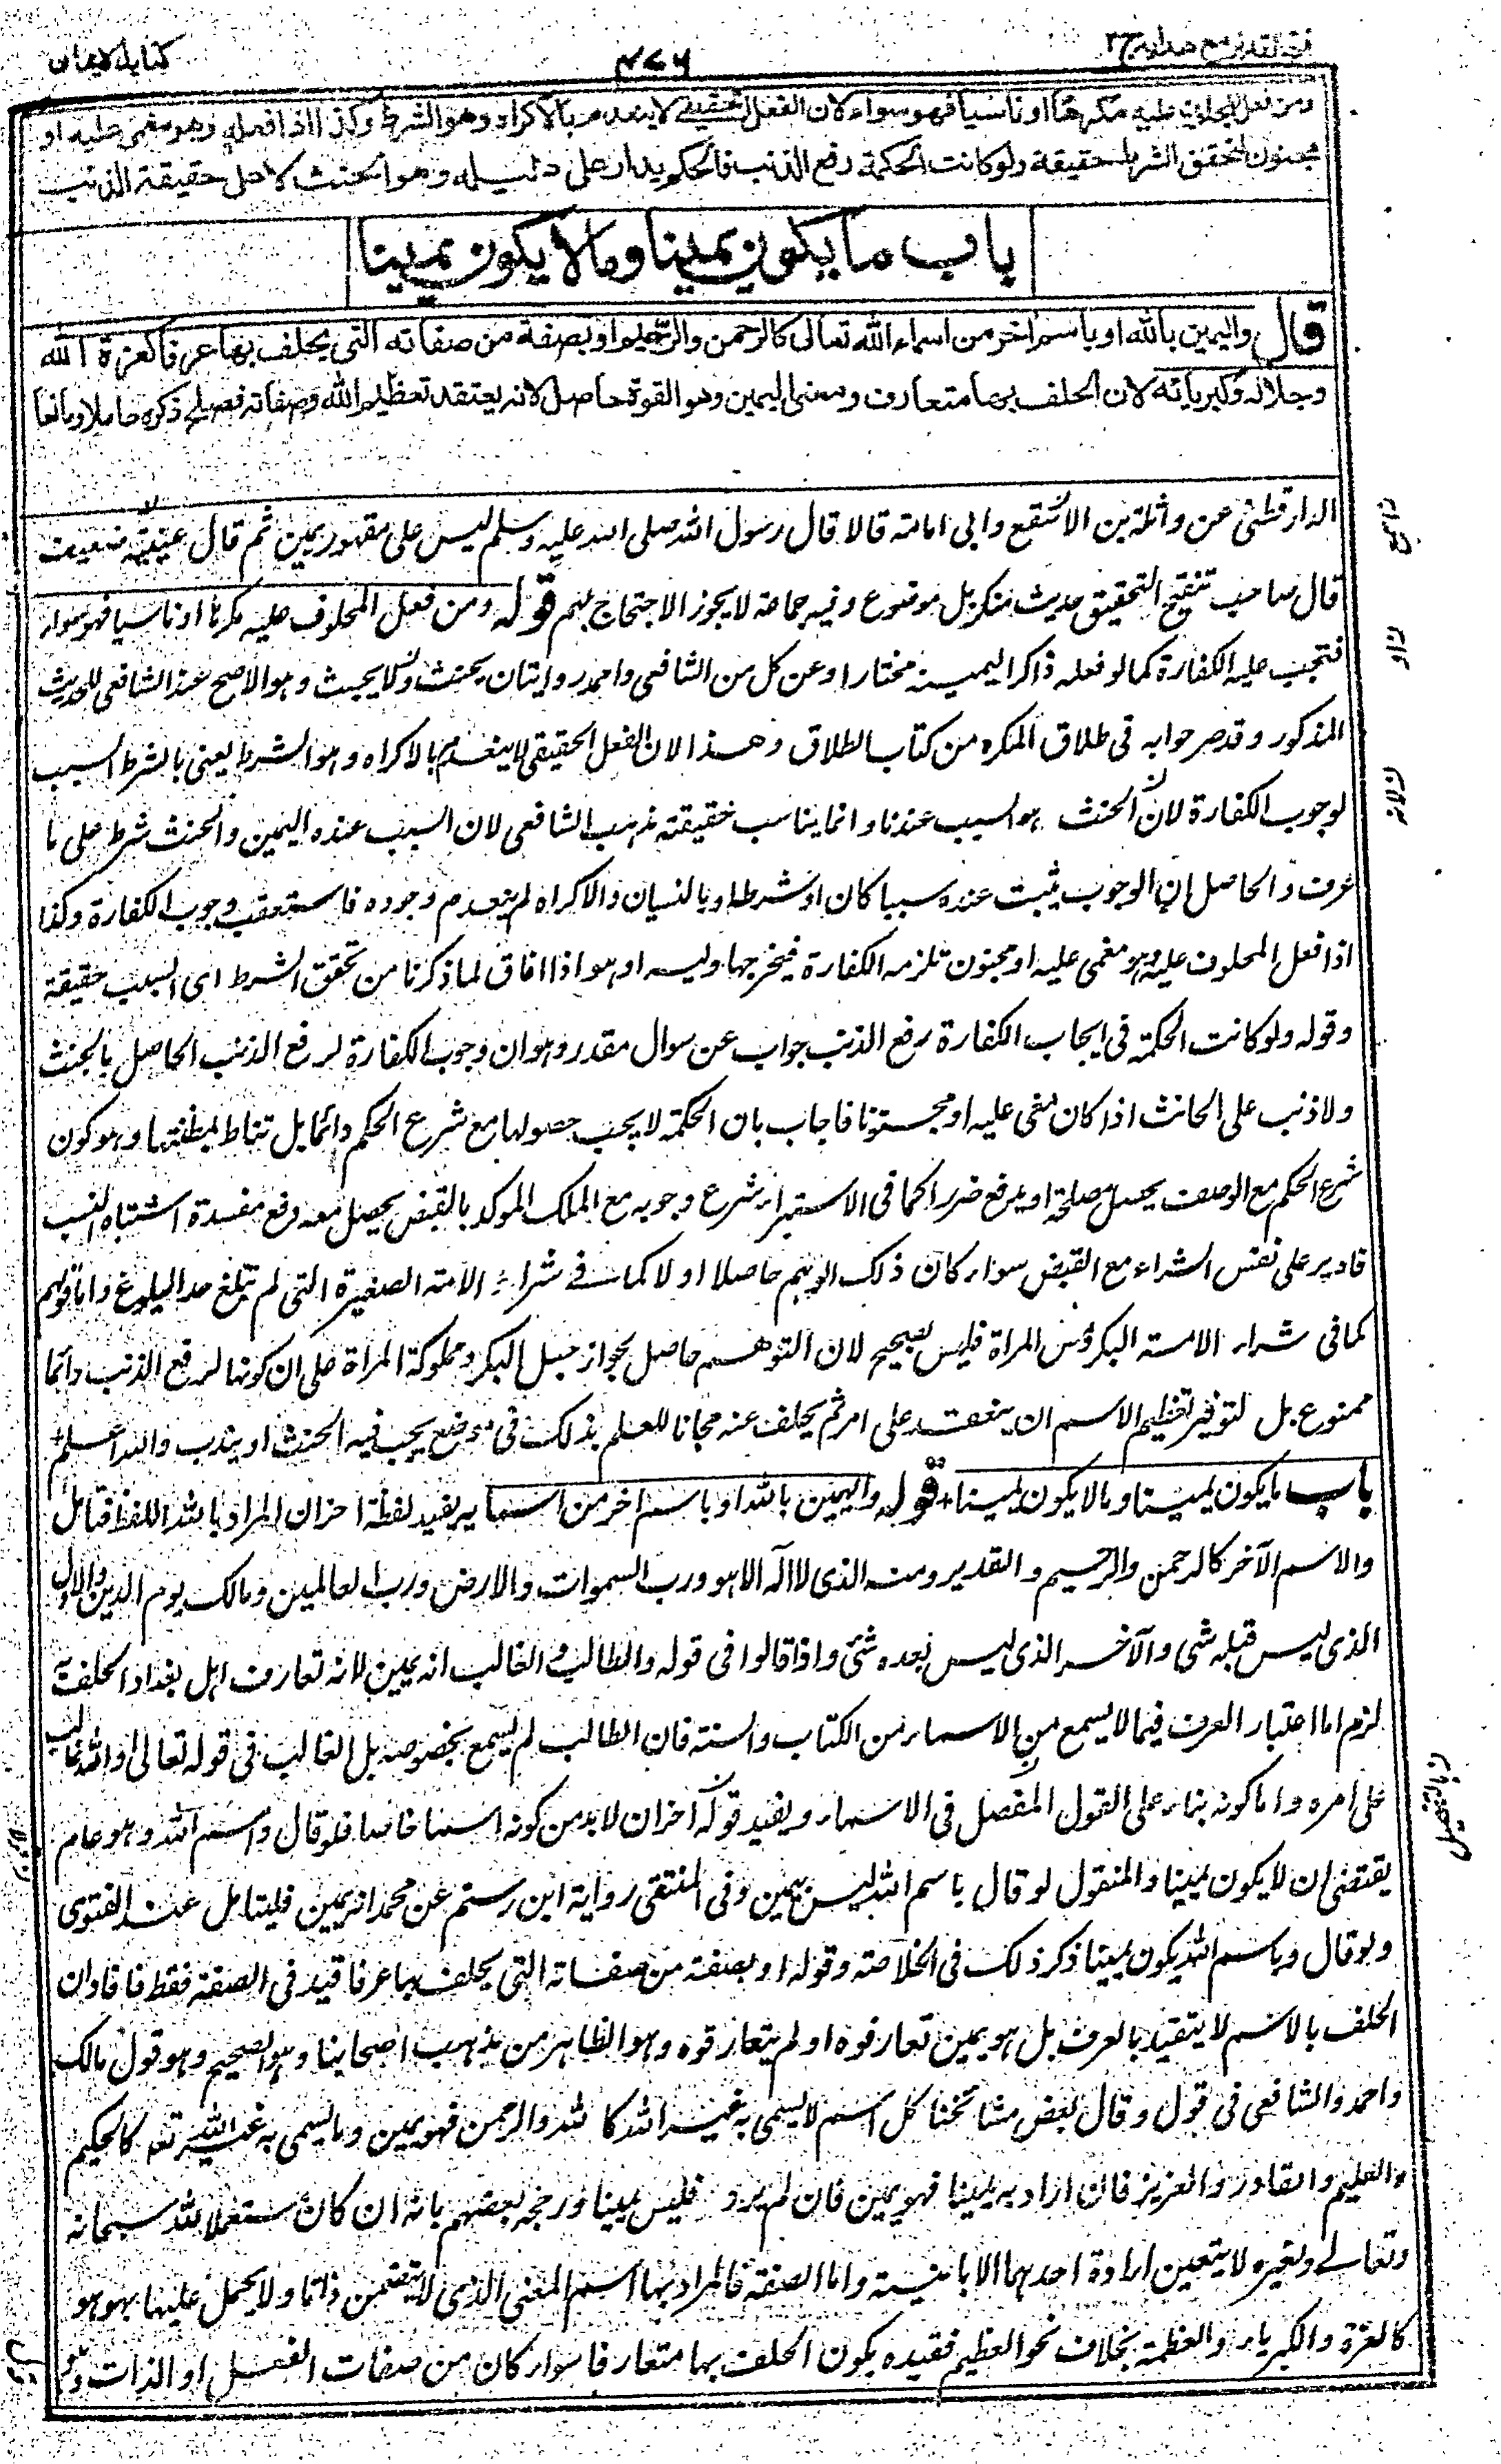 فتح القدير مع هدايه ج ٢
٤٧٦
كتاب الايمان
ومن فعل المحلوف عليه مكرها او ناسيا فهو سواء لان الفعل الحقيقي لا ينعدم بالاكراه وهو الشرط وكذا اذا فعله وهو مغمى عليه او
مجنون لتحقق الشرط حقيقة ولو كانت الحكمة رفع الذنب فالحكم يدار على دليله وهو الحنث لا على حقيقة الذنب
باب ما يكون يمينا وما لا يكون يمينا
قال واليمين بالله او باسم اخر من اسماء الله تعالى كالرحمن والرحيم او بصفة من صفاته التى يحلف بها عرفا كعزة الله
وجلاله وكبريائه لان الحلف بها متعارف ومعنى اليمين وهو القوة حاصل لانه يعتقد تعظيم الله وصفاته فصلح ذكره حاملا ومانعا
الدارقطنى عن واثلة بن الاسقع وابى امامة قالا قال رسول الله صلى الله عليه وسلم ليس على مقهور يمين ثم قال عنبسة ضعيف
قال صاحب تنقيح التحقيق حديث منكر بل موضوع وفيه جماعة لا يجوز الاحتجاج بهم قوله ومن فعل المحلوف عليه مكرها او ناسيا فهو سواء
فتجب عليه الكفارة كما لو فعله ذاكرا ليمينه مختارا وعن كل من الشافعى واحمد روايتان يحنث ولا يحنث وهو الاصح عند الشافعى للحديث
المذكور وقد مر جوابه فى طلاق المكره من كتاب الطلاق وهذا لان الفعل الحقيقى لا ينعدم بالاكراه وهو الشرط يعنى بالشرط السبب
لوجوب الكفارة لان الحنث هو السبب عندنا وانما يناسب حقيقته مذهب الشافعى لان السبب عنده اليمين والحنث شرط على ما
عرف والحاصل ان الوجوب يثبت عنده سببا كان او شرطا وبالنسيان والاكراه لم ينعدم وجوده فاستعقب وجوب الكفارة وكذا
اذا فعل المحلوف عليه وهو مغمى عليه او مجنون تلزمه الكفارة فيخرجها وليه او هو اذا افاق لما ذكرنا من تحقق الشرط اى السبب حقيقة
وقوله ولو كانت الحكمة فى ايجاب الكفارة رفع الذنب جواب عن سوال مقدر وهو ان وجوب الكفارة لرفع الذنب الحاصل بالحنث
ولا ذنب على الحانث اذا كان مغمى عليه او مجنونا فاجاب بان الحكمة لا يجب حصولها مع شرع الحكم دائما بل تناط بمظنتها وهو كون
شرع الحكم مع الوصف يحصل مصلحة او يدفع ضررا كما فى الاستبراء شرع وجوبه مع الملك الموكد بالقبض يحصل معه دفع مفسدة اشتباه النسب
فادير على نفس الشراء مع القبض سواء كان ذلك الوهم حاصلا او لا كما فى شراء الامة الصغيرة التى لم تبلغ حد البلوغ واما قولهم
كما فى شراء الامة البكر ومن المراة فليس بصحيح لان التوهم حاصل بجواز حبل البكر ومملوكة المراة على ان كونها لرفع الذنب دائما
ممنوع بل لتوفير تعظيم الاسم ان ينعقد على امر ثم يخلف عنه مجانا للعلم بذلك فى موضع يجب فيه الحنث او يندب والله اعلم
باب ما يكون يمينا وما لا يكون يمينا قوله واليمين بالله او باسم اخر من اسمائه يفيد لفظة اخر ان المراد بالله اللفظ فتامل
والاسم الآخر كالرحمن والرحيم والقدير ومنه الذى لا اله الا هو ورب السموات والارض ورب العالمين ومالك يوم الدين والاول
الذى ليس قبله شئ والآخر الذى ليس بعده شئ واذا قالوا فى قوله والطالب والغالب انه يمين لانه تعارف اهل بغداد الحلف به
لزم اما اعتبار العرف فيما لا يسمع من الاسماء من الكتاب والسنة فان الطالب لم يسمع بخصوصه بل الغالب فى قوله تعالى والله غالب
على امره واما كونه بناء على القول المفصل فى الاسماء ويفيد قوله آخر ان لا بد من كونه اسما خاصا فلو قال واسم الله وهو عام
يقتضى ان لا يكون يمينا والمنقول لو قال باسم الله ليس بيمين وفى المنتقى رواية ابن رستم عن محمد انه يمين فليتامل عند الفتوى
ولو قال وباسم الله يكون يمينا ذكر ذلك فى الخلاصة وقوله او بصفة من صفاته التى يحلف بها عرفا قيد فى الصفة فقط فافاد ان
الحلف بالاسم لا يتقيد بالعرف بل هو يمين تعارفوه او لم يتعارفوه وهو الظاهر من مذهب اصحابنا وهو الصحيح وهو قول مالك
واحمد والشافعى فى قول وقال بعض مشائخنا كل اسم لا يسمى به غير الله كالله والرحمن فهو يمين وما يسمى به غير الله تعالى كالحكيم
والعليم والقادر والعزيز فان اراد به يمينا فهو يمين فان لم يرد فليس يمينا ورجحه بعضهم بانه ان كان مستعملا لله سبحانه
وتعالى ولغيره لا يتعين ارادة احدهما الا بالنية واما الصفة فالمراد بها اسم المعنى الذى لا يتضمن ذاتا ولا يحمل عليها بهو هو
كالعزة والكبرياء والعظمة بخلاف نحو العظيم فقيده بكون الحلف بها متعارفا سواء كان من صفات الفعل او الذات وهو